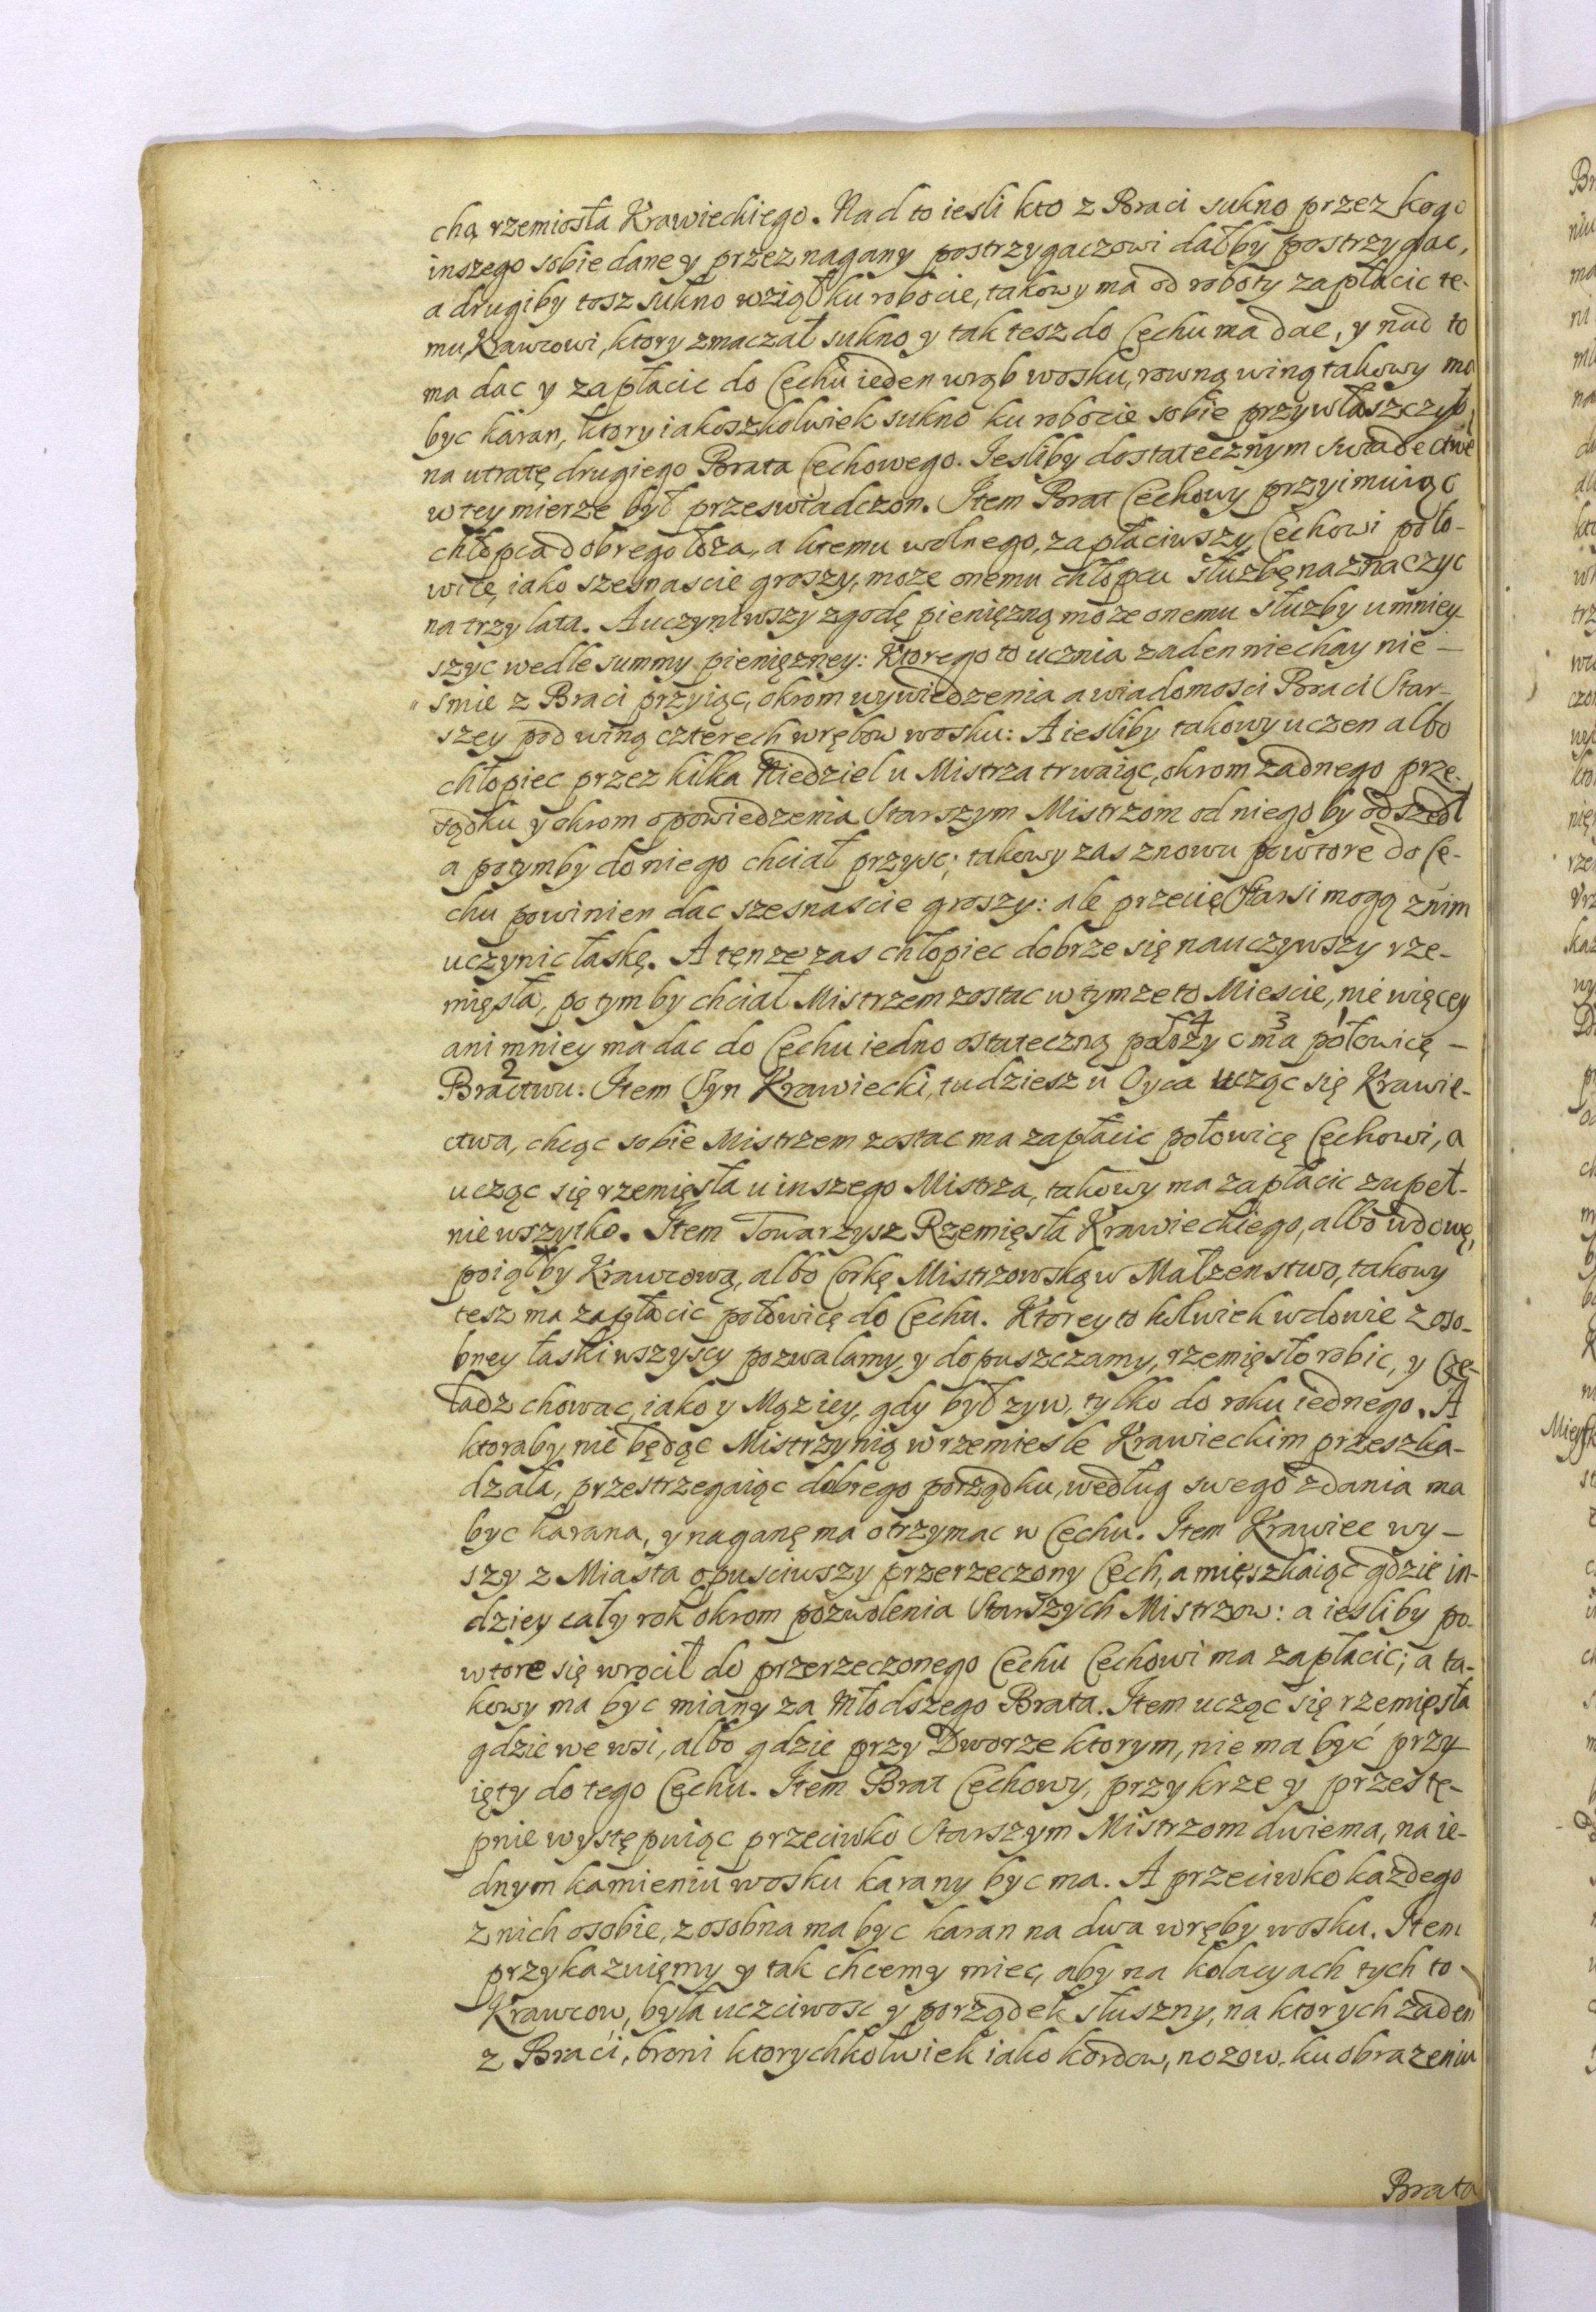 chą rzemiosła Krawieckiego. Nad to iesli kto z Braci sukno przez kogo
inszego sobie dane y przez nagany postrzygaczowi dałby postrzygac,
a drugiby tosz sukno wziął ku robocie, takowy ma od roboty zapłacic te-
mu Krawcowi, ktory zmaczał sukno y tak tesz do Cechu ma dac, y nad to
ma dac y zapłacic do Cechu ieden wrąb wosku, rowną winą takowy ma
byc karan, ktory iakoszkolwiek sukno ku robocie sobie przywłaszczył,
na utratę drugiego Brata Cechowego. Iesliby dostatecznym swiadectwe
w tey mierze był przeswiadczon. Item Brat Cechowy przyimuiąc
chłopca dobrego łoza, a ktemu wolnego, zapłaciwszy Cechowi poło-
wicę, iako szesnascie groszy, moze onemu chłopcu słuzbę naznaczyc
na trzy lata. A uczyniwszy zgodę pienięzną moze onemu słuzby umniey-
szyc wedle summy pienięzney: Ktorego to ucznia zaden niechay nie-
smie z Braci przyiąc, okrom wywiedzenia a wiadomosci Braci Star-
szey pod winą czterech wrębow wosku: A iesliby takowy uczen albo
chłopiec przez kilka Niedziel u Mistrza trwaiąc, okrom zadnego prze-
sądku y okrom opowiedzenia Starszym Mistrzom od niego by odszedł
a potymby do niego chciał przysc; takowy zas znowu powtore do Ce-
chu powinien dac szesnascie groszy: ale przecię Starsi mogą z nim
uczynic łaskę. A tenze zas chłopiec dobrze się nauczywszy rze-
mięsła, potym by chciał Mistrzem zostac w tymze to Miescie, nie więcey
ani mniey ma dac do Cechu iedno ostateczną położyc 4 ma 3 połowicę 1 -
Bractwu 2. Item Syn Krawiecki, tudziesz u Oyca ucząc się Krawie-
ctwa, chcąc sobie Mistrzem zostac ma zapłacic połowicę Cechowi, a
ucząc się rzemięsła u inszego Mistrza, takowy ma zapłacic zupeł-
nie wszytko. Item Towarzysz Rzemięsła Krawieckiego, albo wdowę,
poiąłby Krawcową, albo Corkę Mistrzowską w Małzenstwo, takowy
tesz ma zapłacic połowicę do Cechu. Ktorey to kolwiek wdowie z oso-
bney łaski wszyscy pozwalamy, y dopuszczamy, rzemięsło robic, y Cze-
ladz chowac, iako y Mąz iey, gdy był zyw, tylko do roku iednego. A
ktoraby nie będąc Mistrzynią w rzemiesle Krawieckim przeszka-
dzała, przestrzegaiąc dobrego porządku, według swego zdania ma
byc karana, y naganę ma otrzymac w Cechu. Item Krawiec wy-
szy z Miasta opusciwszy przerzeczony Cech, a mięszkaiąc gdzie in-
dziey cały rok okrom pozwolenia Starszych Mistrzow: a iesliby po-
wtore się wrocił do przerzeczonego Cechu Cechowi ma zapłacic; a ta-
kowy ma byc miany za Młodszego Brata. Item ucząc się rzemięsła
gdzie we wsi, albo gdzie przy Dworze ktorym, nie ma być przy
ięty do tego Cechu. Item Brat Cechowy, przykrze y przestę-
pnie występuiąc przeciwko Starszym Mistrzom dwiema, na ie-
dnym kamieniu wosku karany byc ma. A przeciwko kazdego
z nich osobie, z osobna ma byc karan na dwa wręby wosku. Item
przykazuięmy y tak chcemy miec, aby na kolacyach tych to
Krawcow, była uczciwosc y porządek słuszny, na ktorych zaden
z Braci, broni ktorychkolwiek iako kordow, nozow, ku obrazeniu
Brata